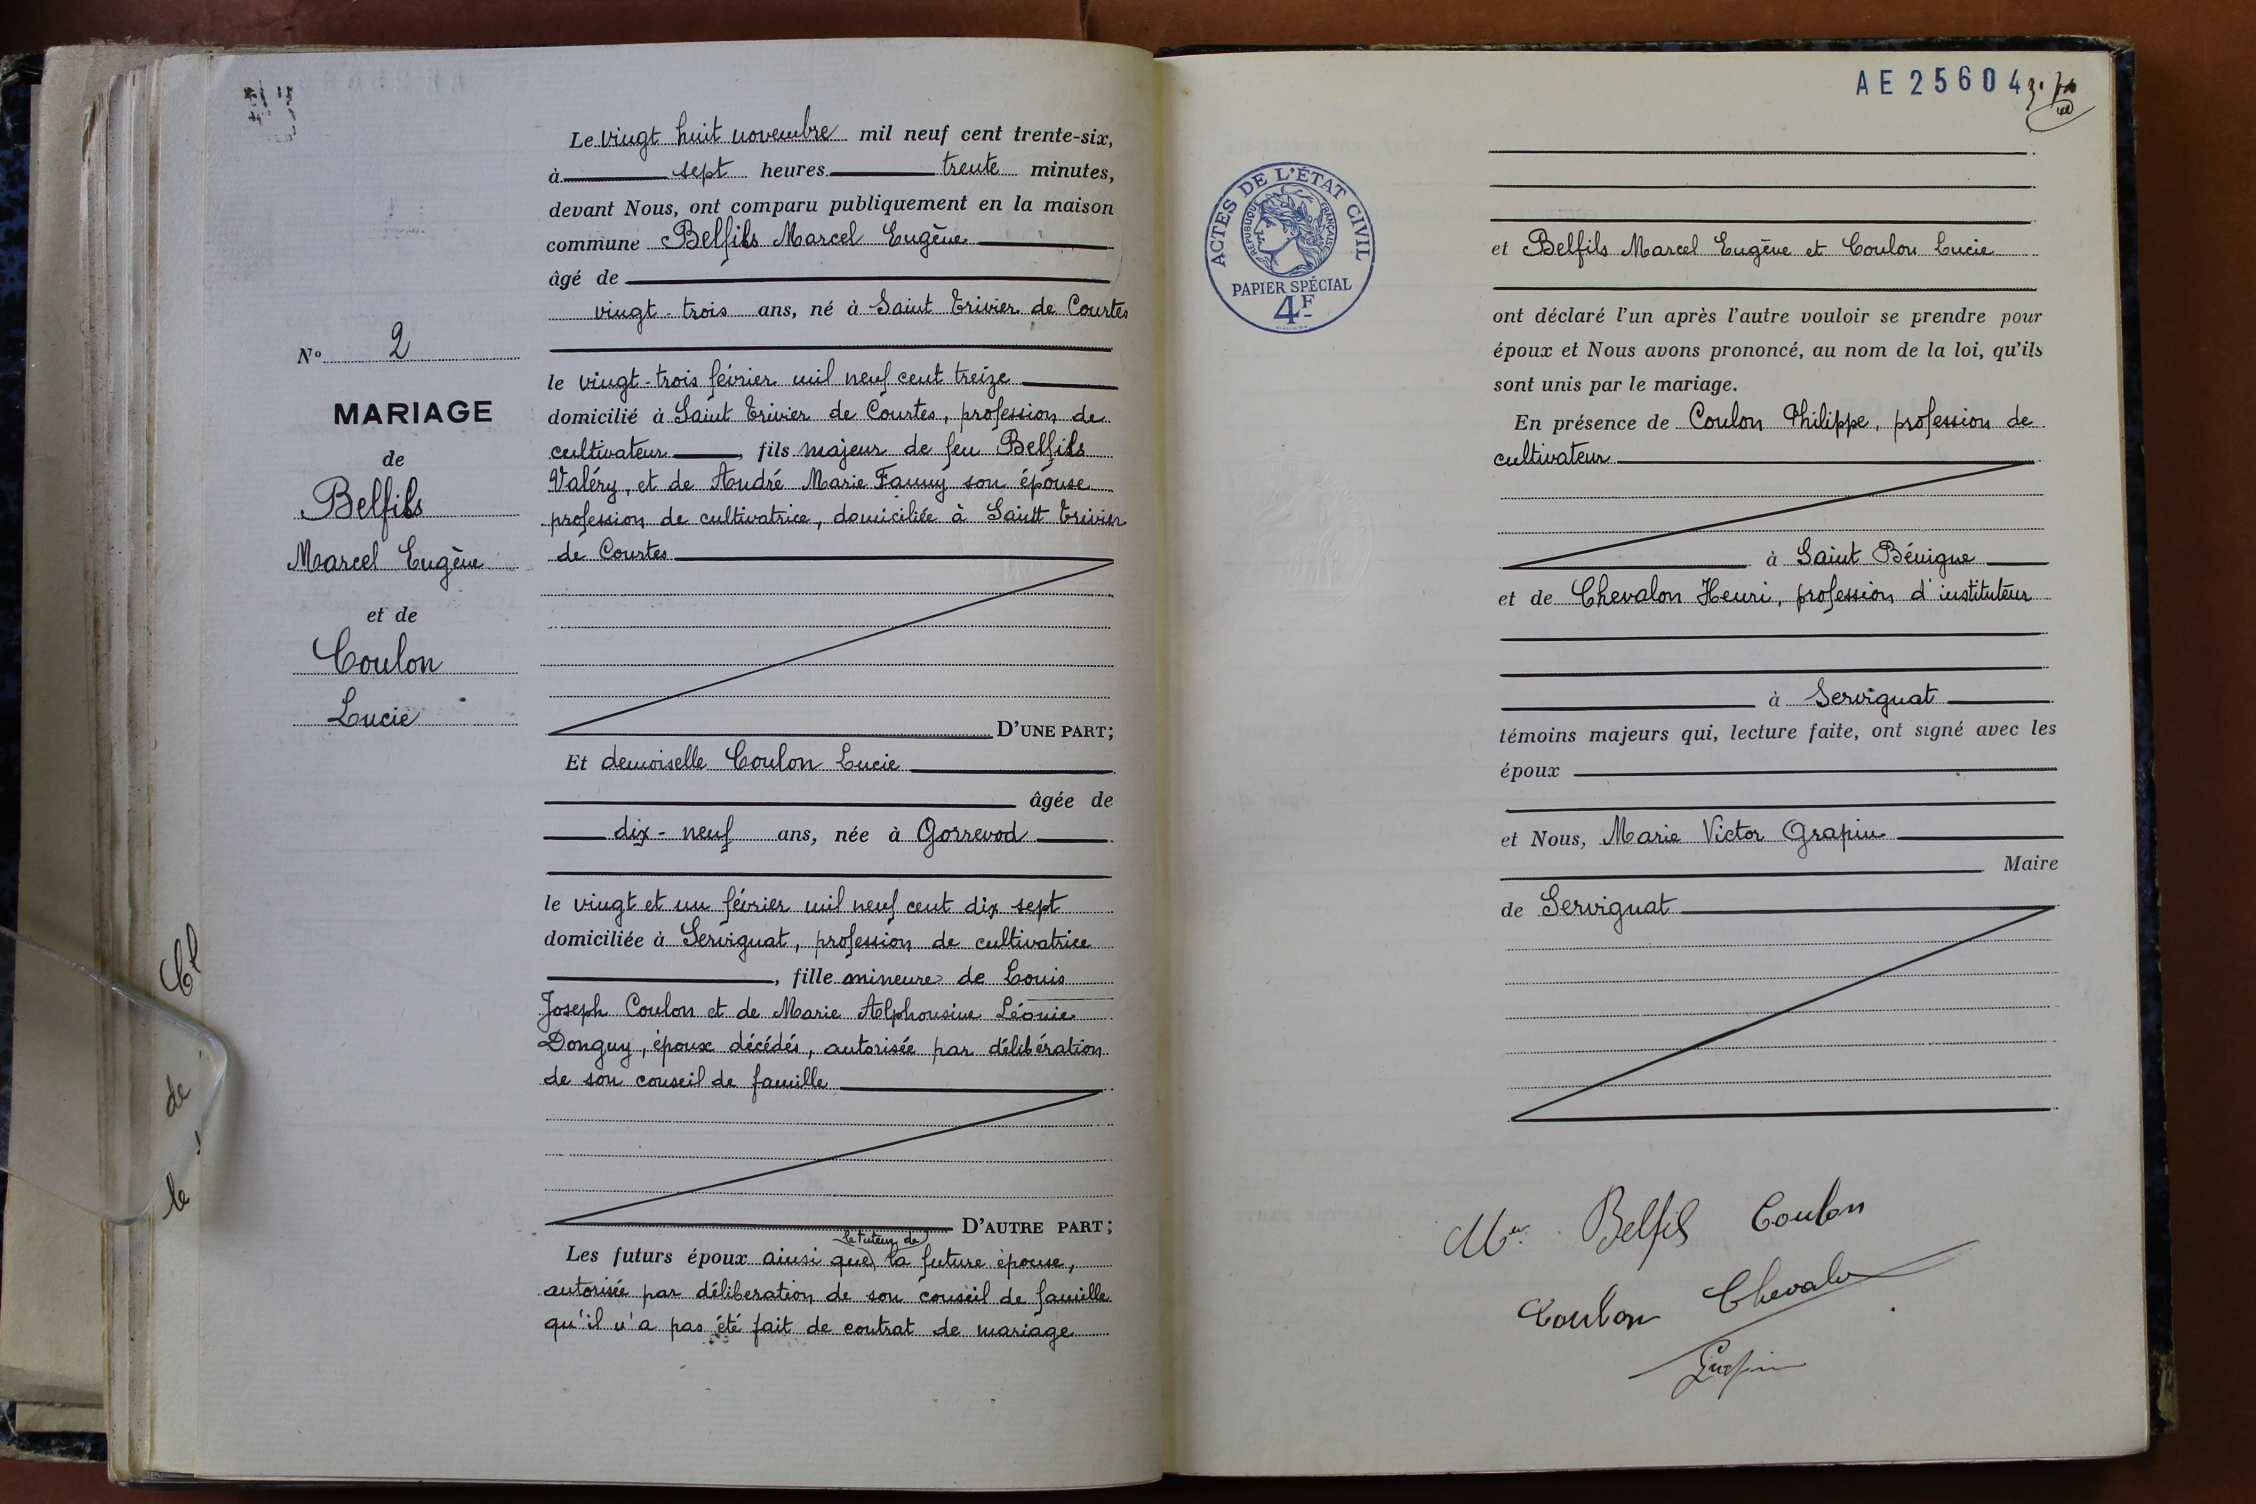 N° 2
MARIAGE
de
Belfils
Marcel Eugène
et de
Coulon
Lucie
Le vingt huit novembre mil neuf cent trente-six,
à sept heures trente minutes,
devant Nous, ont comparu publiquement en la maison
commune Belfils Marcel Eugène
âgé de
vingt-trois ans, né à Saint Trivier de Courtes
le vingt-trois février mil neuf cent treize
domicilié à Saint Trivier de Courtes, profession de
cultivateur, fils majeur de feu Belfils
Valéry, et de André Marie Fanny son épouse
profession de cultivatrice, domiciliée à Saint Trivier
de Courtes
D'UNE PART;
Et demoiselle Coulon Lucie
âgée de
dix-neuf ans, née à Gorrevod
le vingt et un février mil neuf cent dix sept
domiciliée à Servignat, profession de cultivatrice
, fille mineure de Louis
Joseph Coulon et de Marie Alphonsine Léonie
Donguy, époux décédés, autorisée par délibération
de son conseil de famille
D'AUTRE PART;
le tuteur de
Les futurs époux ainsi que la future épouse,
autorisée par déliberation de son conseil de famille
qu'il n'a pas été fait de contrat de mariage
de
le
AE25604
ACTES DE L'ÉTAT CIVIL
RÉPUBLIQUE FRANÇAISE
PAPIER SPÉCIAL
4F
et Belfils Marcel Eugène et Coulon Lucie
ont déclaré l'un après l'autre vouloir se prendre pour
époux et Nous avons prononcé, au nom de la loi, qu'ils
sont unis par le mariage.
En présence de Coulon Philippe, profession de
cultivateur
à Saint Bénigne
et de Chevalon Henri, profession d'instituteur
à Servignat
témoins majeurs qui, lecture faite, ont signé avec les
époux
et Nous, Marie Victor Grapin
Maire
de Servignat
Belfils Coulon
Coulon Chevalon
Grapin